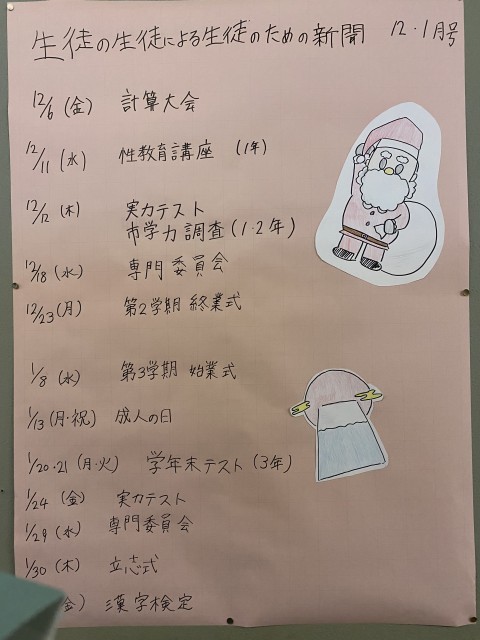 生徒の生徒による生徒のための新聞 12・1月号
12/6 (金) 計算大会
12/11 (水) 性教育講座 (1年)
12/12 (木) 実力テスト
市学力調査 (1・2年)
12/18 (水) 専門委員会
12/23 (月) 第2学期 終業式
1/8 (水) 第3学期 始業式
1/13 (月・祝) 成人の日
1/20・21 (月・火) 学年末テスト (3年)
1/24 (金) 実力テスト
1/29 (水) 専門委員会
1/30 (木) 立志式
金) 漢字検定